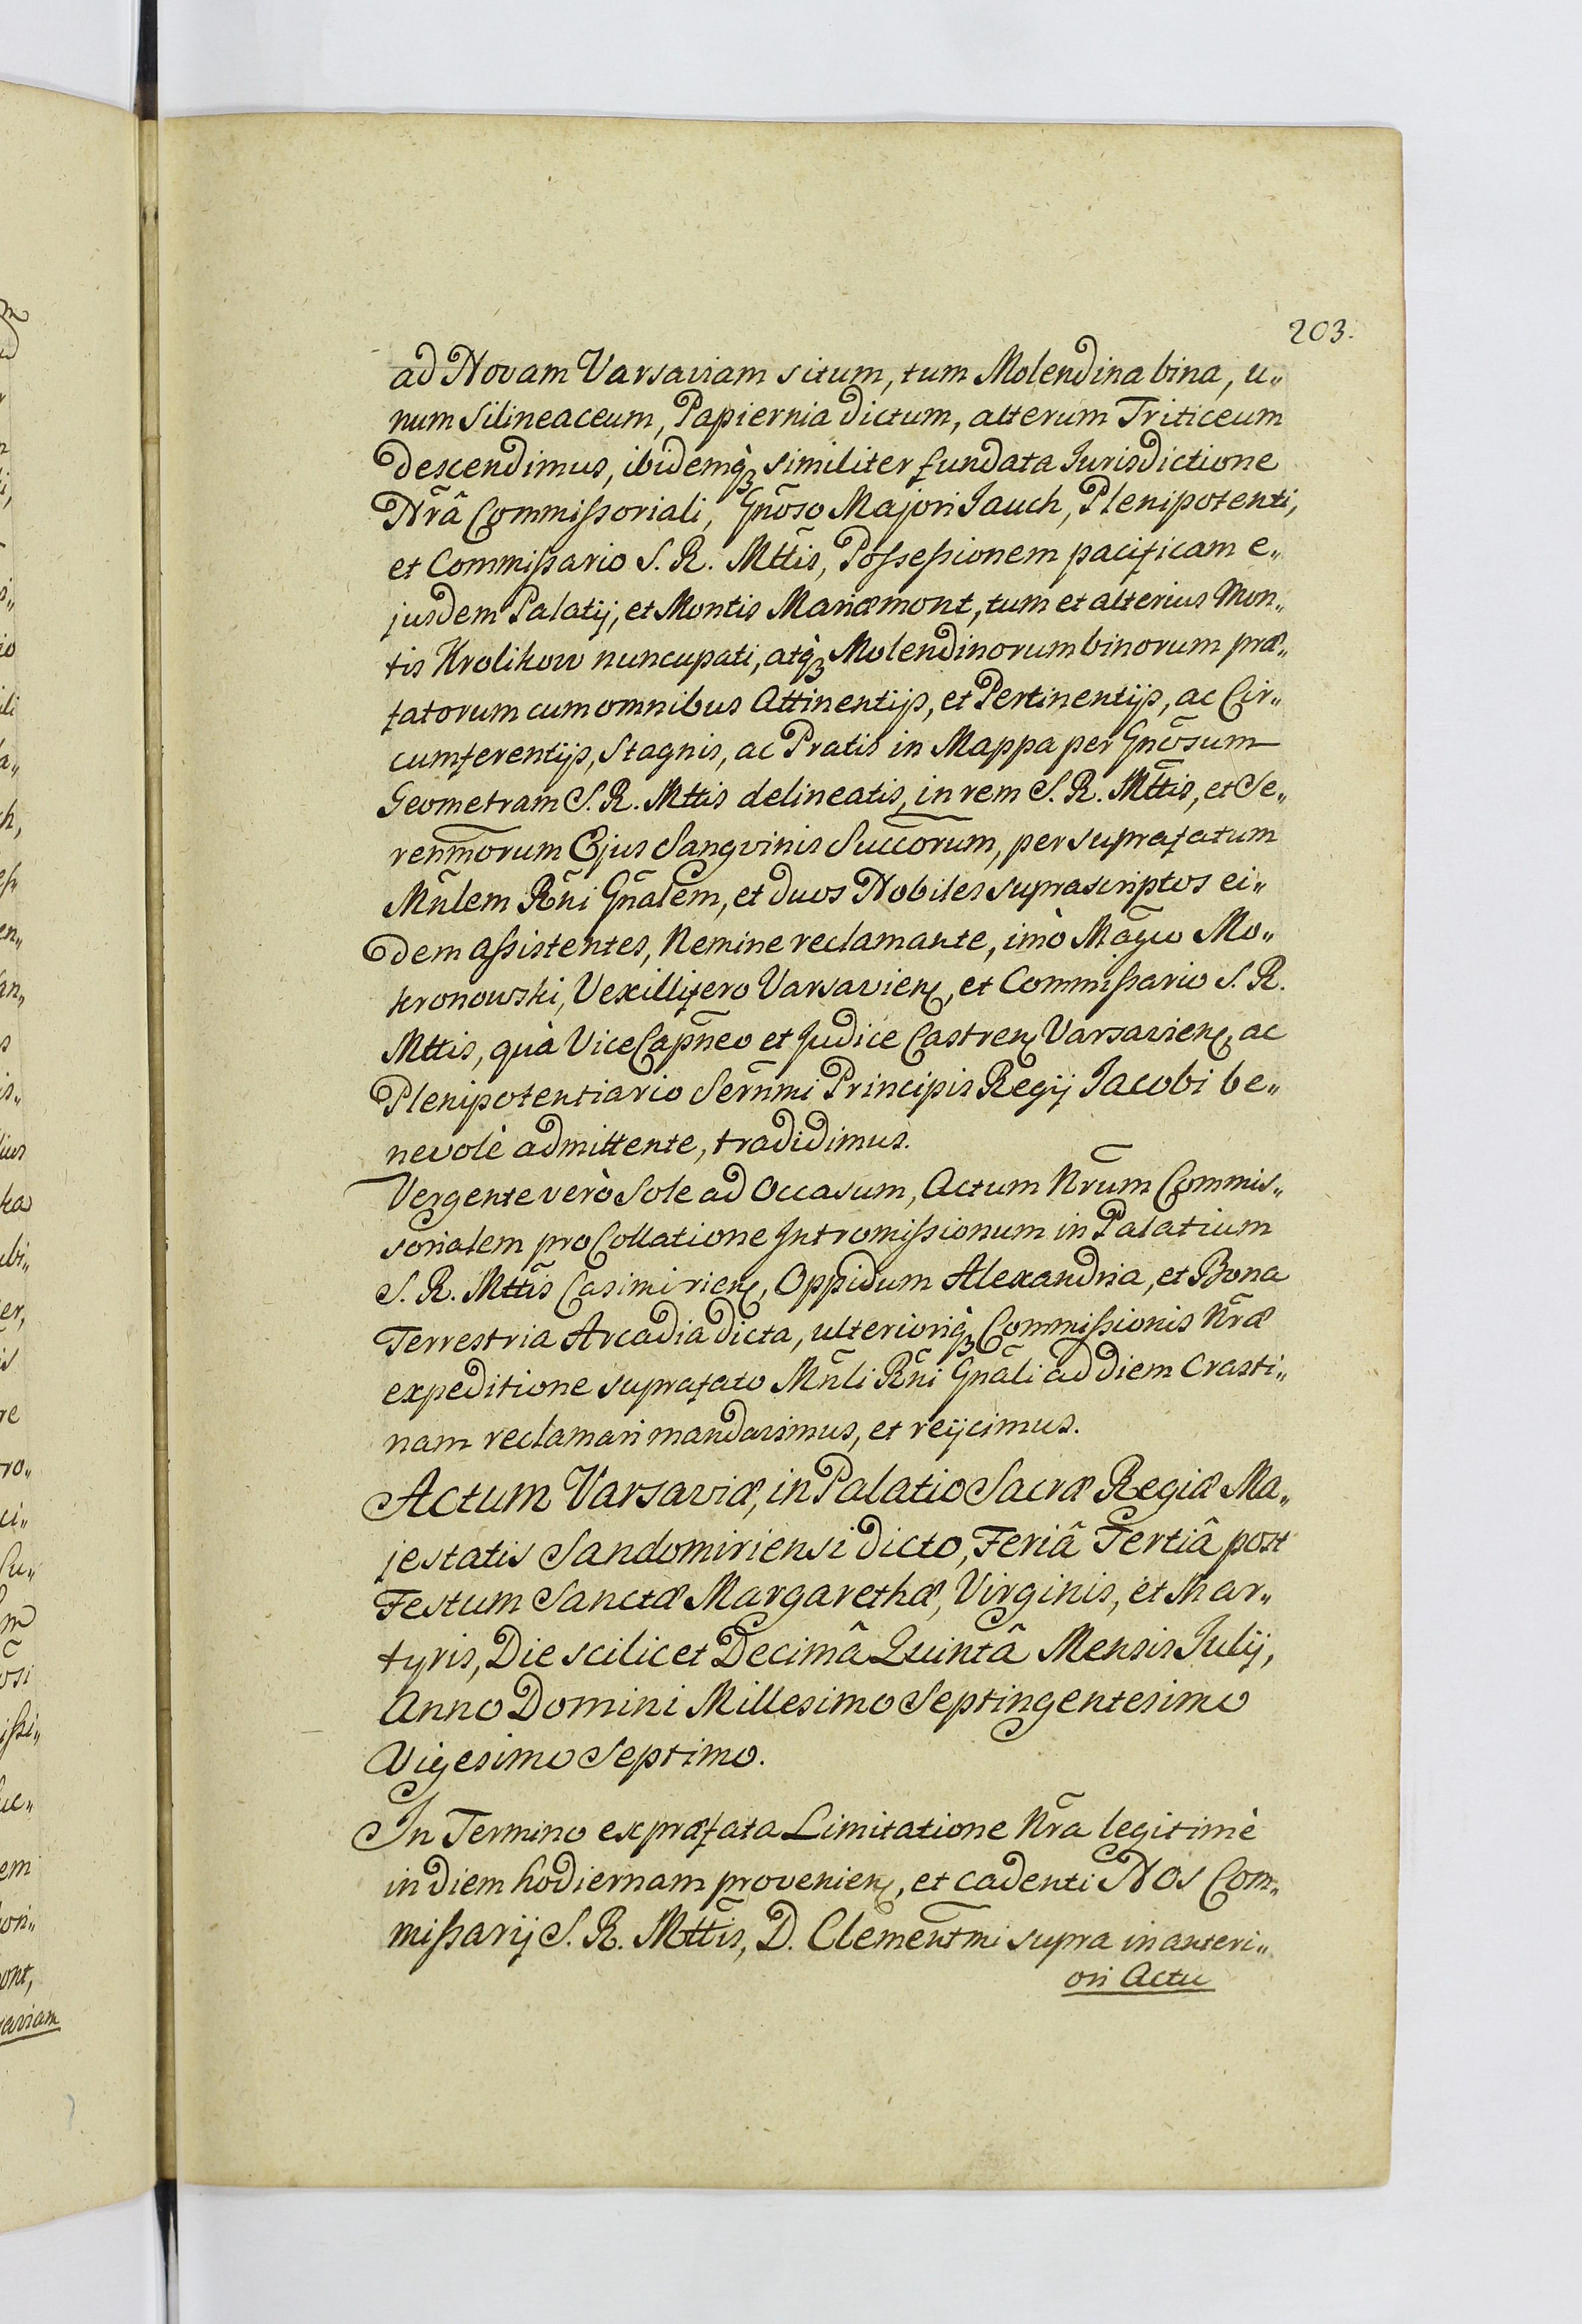 203.
ad Novam Varsaviam situm, tum Molendina bina, u„
num Silineaceum, Papiernia dictum, alterum Triticeum
descendimus, ibidemq̀ꝫ similiter fundata Jurisdictione
Nr̃â Commißoriali, Gnõso Majori Jauch, Plenipotenti,
et Commißario S. R. Mttis, Poßeßionem pacificam e„
jusdem Palatij, et Montis Mariæmont, tum et alterius Mon„
tis Krolikow nuncupati, atq̀ꝫ Molendinorum binorum præ„
fatorum cum omnibus Attinentijs, et Pertinentijs, ac Cir„
cumferentijs, Stagnis, ac Pratis in Mappa per Gnõsum
Geometram S. R. Mttis delineatis, in rem S. R. Mttis, et Se„
renm̃orum Ejus Sangvinis Succõrum, per suprafatum
Mñlem Rñi Gñalem, et duos Nobiles suprascriptos ei„
dem aßistentes, Nemine reclamante, imò Mag̃co Mo„
kronowski, Vexillifero Varsavien, et Commißario S. R.
Mttis, quà ViceCapñeo et Judice Castren Varsavien, ac
Plenipotentiario Serñmi Principis Regij Jacobi be„
nevolè admittente, tradidimus.
Vergente verò Sole ad Occasum, Actum Nr̃um Commis„
sorialem pro Collatione Intromißionum in Palatium
S. R. Mttis Casimirien, Oppidum Alexandria, et Bona
Terrestria Arcadia dicta, ulterioriq̀ꝫ Commißionis Nr̃æ
expeditione suprafato Mñli Rñi Gñali ad diem Crasti„
nam reclamari mandavimus, et reijcimus.
Actum Varsaviæ, in Palatio Sacræ Regiæ Ma„
jestatis Sandomiriensi dicto, Feriâ Tertiâ post
Festum Sanctæ Margarethæ, Virginis, et Mar„
tyris, Die scilicet Decimâ Quintâ Mensis Julij,
Anno Domini Millesimo Septingentesimo
Vigesimo Septimo.
In Termino ex præfata Limitatione Nr̃a legitimè
in diem hodiernam provenien, et cadenti Nos Com„
mißarij S. R. Mttis, D. Clementm̃i supra in anteri„
ori Actu